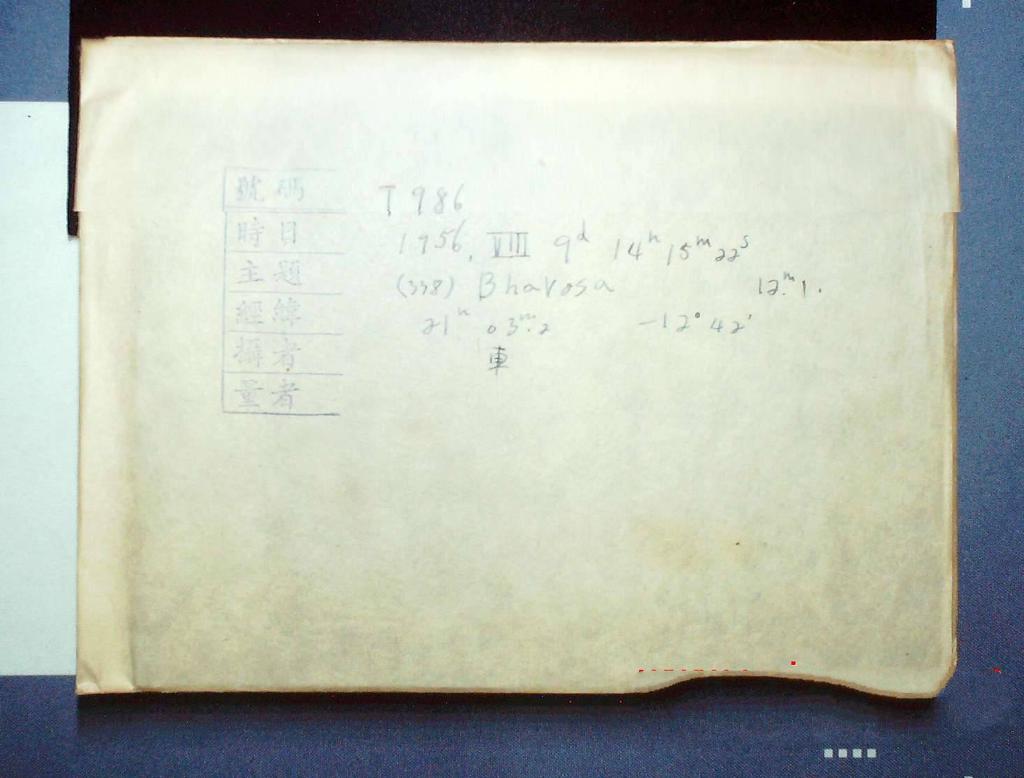 號碼 T 986
時日 1956. VIII 9ᵈ 14ʰ 15ᵐ 22ˢ
主題 (338) Bharosa 12ᵐ.1.
經緯 21ʰ 03ᵐ.2 -12° 42'
攝者 車
量者